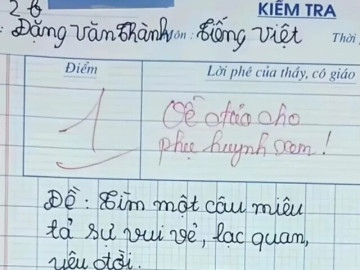 26
KIỂM TRA
: Đặng Văn Thành Môn : Tiếng Việt Thời
Điểm
Lời phê của thầy, cô giáo
1
Về đưa cho
phụ huynh xem !
Đề : Tìm một câu miêu
tả sự vui vẻ, lạc quan,
yêu đời.